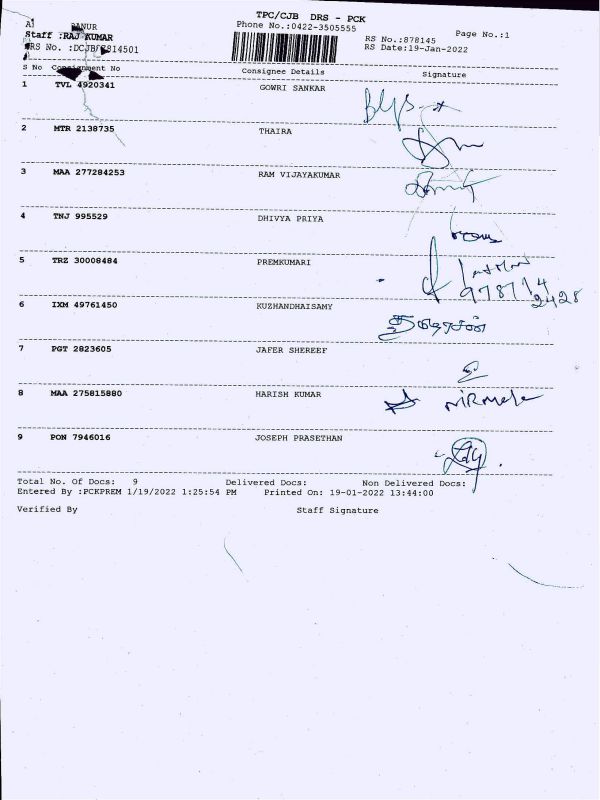 TPC/CJB DRS - PCK
Phone No.:0422-3505555
Page No.:1
RS No.:878145
Staff :RAJ KUMAR
RS Date:19-Jan-2022
S No Consignment No Consignee Details Signature
1 TVL 4920341 GOWRI SANKAR
2 MTR 2138735 THAIRA
3 MAA 277284253 RAM VIJAYAKUMAR
4 TNJ 995529 DHIVYA PRIYA
5 TRZ 30008484 PREMKUMARI
978714
2428
6 IXM 49761450 KUZHANDHAISAMY
7 PGT 2823605 JAFER SHEREEF
8 MAA 275815880 HARISH KUMAR
9 PON 7946016 JOSEPH PRASETHAN
Total No. Of Docs: 9 Delivered Docs: Non Delivered Docs:
Entered By :PCKPREM 1/19/2022 1:25:54 PM Printed On: 19-01-2022 13:44:00
Verified By Staff Signature